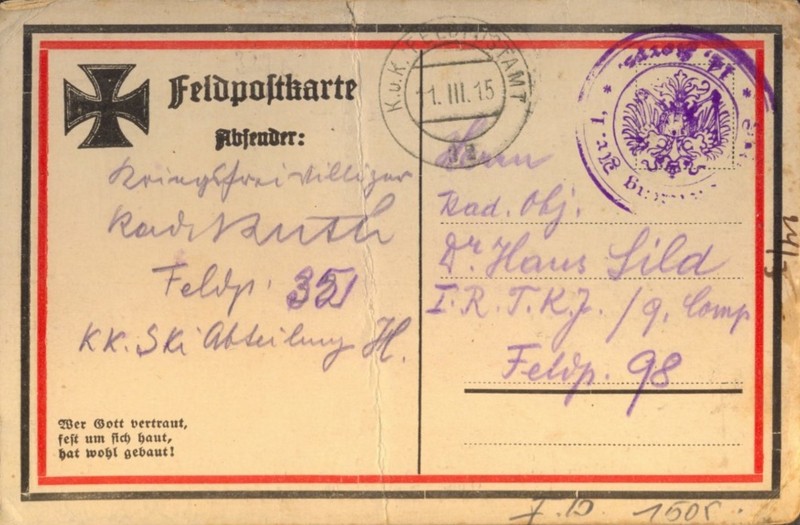 Feldpostkarte
Absender:
Kriegsfreiwilliger
Feldp. 351
KK. Ski Abteilung H.
Wer Gott vertraut,
fest um sich haut,
hat wohl gebaut!
K.u.K. FELDPOSTAMT
1. III. 15
Herrn
Kad. Obj.
Dr Hans Sild
I. R. T. K. J. / 9. Comp
Feldp. 98
14/3